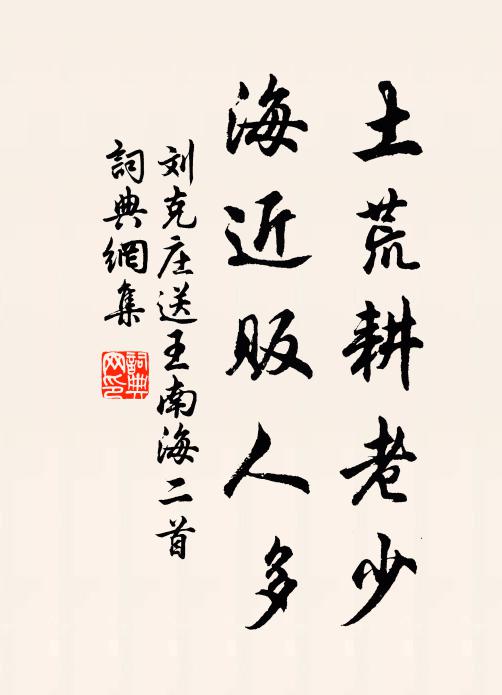 土荒耕老少
海近贩人多
刘克庄送王南海二首
词典网集
詞典网印